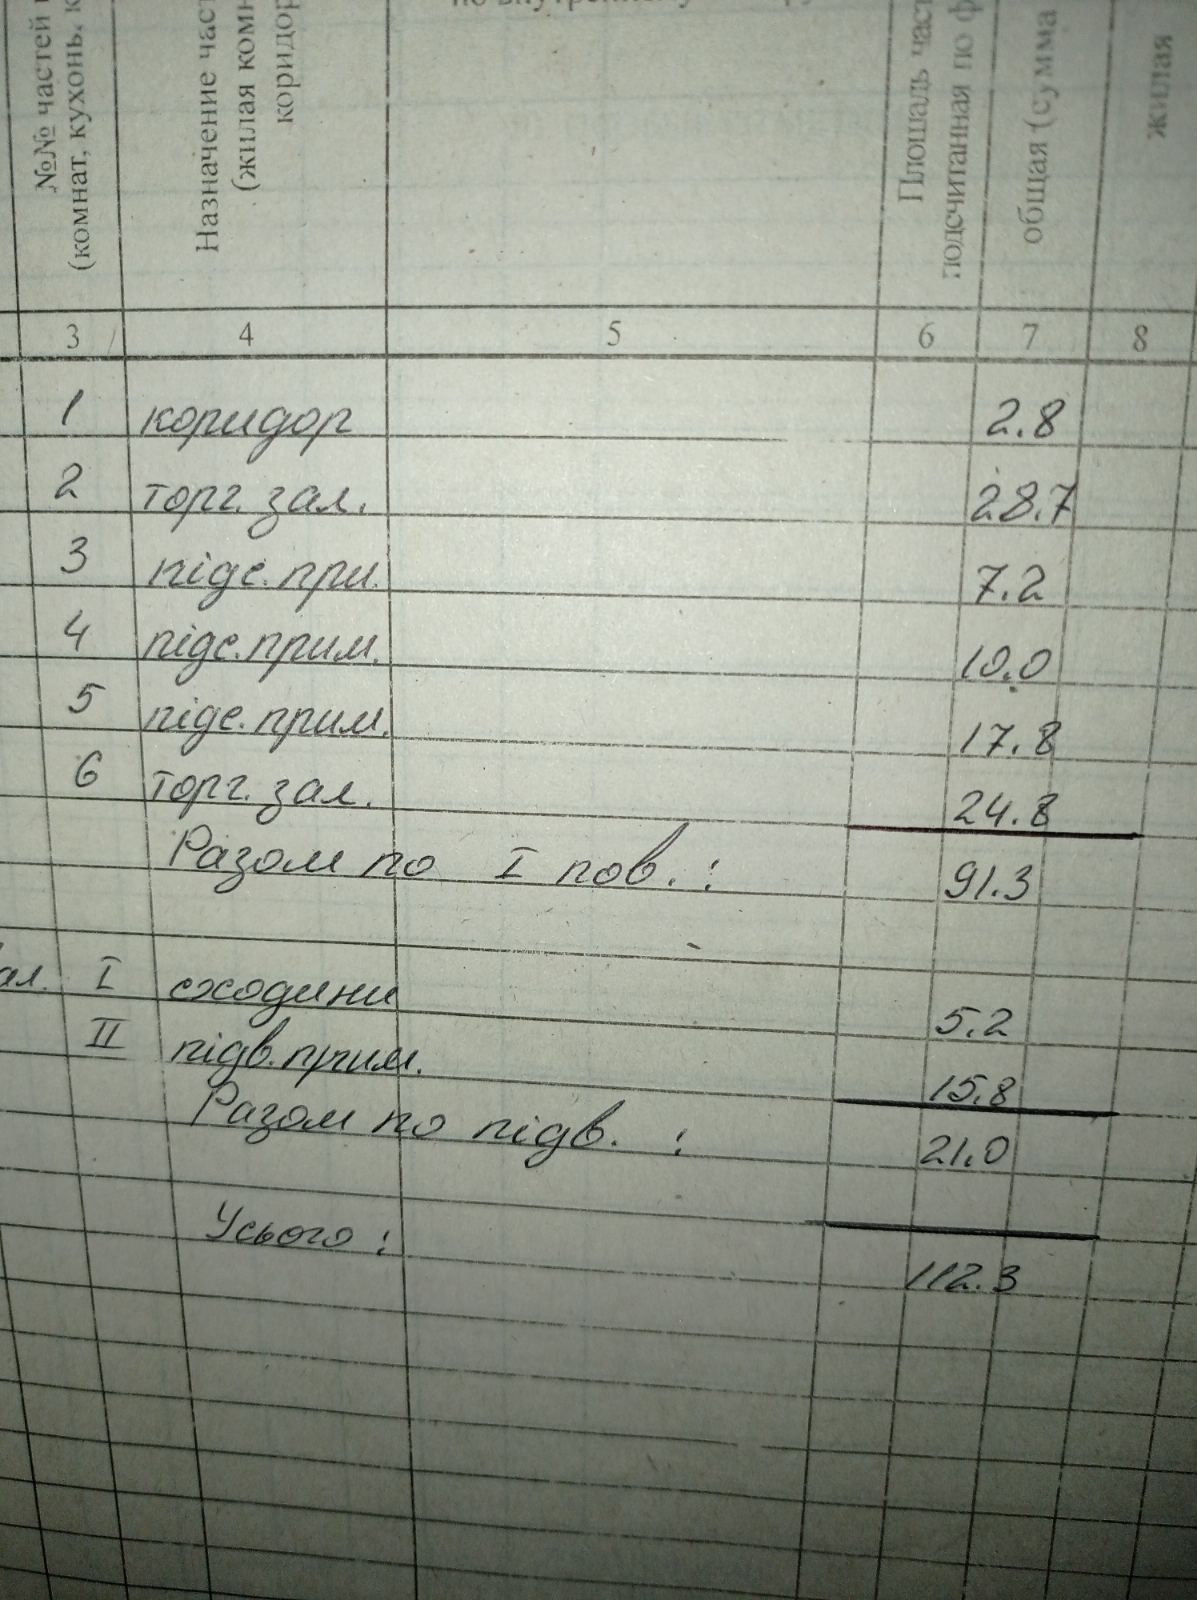 №№ частей
(комнат, кухонь,
Назначение
(жилая
коридор
по внутреннему
Площадь
подсчитанная по
общая (сумма
жилая
3 4 5 6 7 8
1 коридор 2.8
2 торг. зал. 28.7
3 підс. при. 7.2
4 підс. прим. 10.0
5 підс. прим. 17.8
6 торг. зал. 24.8
Разом по I пов. : 91.3
I сходини 5.2
II підв. прим. 15.8
Разом по підв. : 21.0
Усього : 112.3